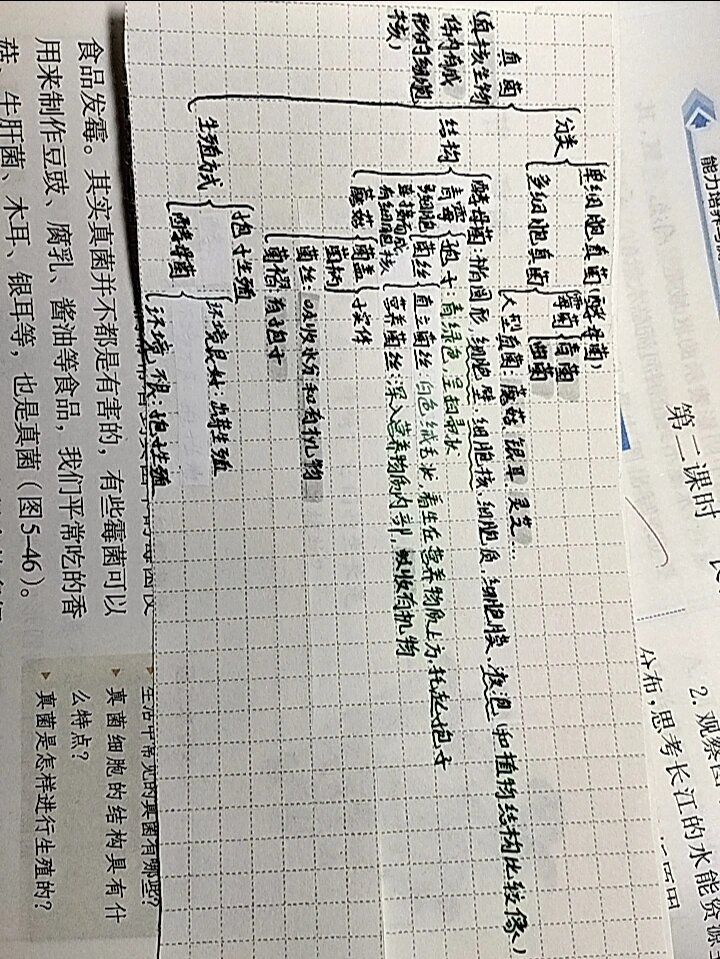 能力培养与测
第二课时
2. 观察图
分布，思考长江的水能资源
真菌
(真核生物
体内有成
形的细胞
核)
分类
单细胞真菌(酵母菌)
多细胞真菌
霉菌
青霉
曲霉
大型真菌: 蘑菇、银耳、灵芝...
结构
酵母菌: 椭圆形, 细胞壁、细胞核、细胞质、细胞膜、液泡 (和植物结构比较像)
青霉
多细胞
连接而成,
有细胞核
孢子: 青绿色, 呈扫帚状
菌丝
直立菌丝: 白色绒毛状 着生在营养物质上方, 托起孢子
营养菌丝: 深入营养物质内部, 吸收有机物
蘑菇
子实体
菌盖
菌柄
菌褶: 有孢子
菌丝: 吸收水分和有机物
生殖方式
孢子生殖
酵母菌
环境良好: 出芽生殖
环境很: 孢子生殖
食品发霉。其实真菌并不都是有害的，有些霉菌可以
用来制作豆豉、腐乳、酱油等食品，我们平常吃的香
菇、牛肝菌、木耳、银耳等，也是真菌（图5-46）。
生活中常见的真菌有哪些?
真菌细胞的结构具有什
么特点?
真菌是怎样进行生殖的?